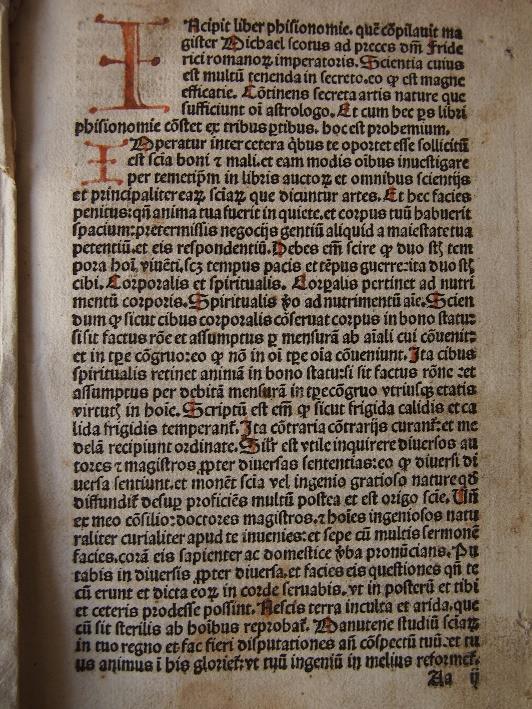 Incipit liber phisionomie. quẽ cõpilauit ma
gister Michael scotus ad preces dñi Fride
rici romanoꝝ imperatoris. Scientia cuius
est multũ tenenda in secreto. eo ꝙ est magne
efficatie. Cõtinens secreta artis nature que
sufficiunt oĩ astrologo. Et cum hec ps libri
phisionomie cõstet ex tribus ꝑtibus. hoc est prohemium.
Inter cetera q̃bus te oportet esse sollicitũ
est scĩa boni ⁊ mali. et eam modis oĩbus inuestigare
per temetip̃m in libris auctoꝝ et omnibus scientijs
et principaliter eaꝝ sciaꝝ que dicuntur artes. Et hec facies
penitus: qñ anima tua fuerit in quiete. et corpus tuũ habuerit
spacium: pretermissis negocijs gentiũ aliquid a maiestate tua
petentiũ. et eis respondentiũ. Debes em̃ scire ꝙ duo sũt tem
pora hoĩ viuẽti. scꝫ tempus pacis et tẽpus guerre: ita duo sũt
cibi. Corporalis et spiritualis. Corꝑalis pertinet ad nutri
mentũ corporis. Spiritualis ꝟo ad nutrimentũ aĩe. Scien
dum ꝙ sicut cibus corporalis cõseruat corpus in bono statu:
si sit factus rõe et assumptus ꝑ mensurã ab aĩali cui cõuenit:
et in tp̃e cõgruo: eo ꝙ nõ in oĩ tp̃e oĩa cõueniunt. Ita cibus
spiritualis retinet animã in bono statu: si sit factus rõne: et
assumptus per debitã mensurã in tp̃e cõgruo vtriusqꝫ etatis
virtutũ in hoĩe. Scriptũ est em̃ ꝙ sicut frigida calidis et ca
lida frigidis temperant̃. Ita cõtraria cõtrarijs curant̃: et me
delã recipiunt ordinate. Silr̃ est vtile inquirere diuersos au
tores ⁊ magistros ꝓpter diuersas sententias: eo ꝙ diuersi di
uersa sentiunt. et monẽt scĩa vel ingenio gratioso nature qđ
diffundit̃ desuꝑ proficiẽs multũ postea et est origo scĩe. Vñ
et meo cõsilio: doctores magistros. ⁊ hoĩes ingeniosos natu
raliter curialiter apud te inuenies: et sepe cũ multis sermonẽ
facies. corã eis sapienter ac domestice ꝟba pronũcians. Pu
tabis in diuersis ꝓpter diuersa. et facies eis questiones qñ te
cũ erunt et dicta eoꝝ in corde seruabis. vt in posterũ et tibi
et ceteris prodesse possint. Nescis terra inculta et arida. que
cũ sit sterilis ab hoĩbus reprobat̃. Manutene studiũ sciaꝝ
in tuo regno et fac fieri disputationes añ cõspectũ tuũ: et tu
us animus ĩ his gloriet̃: vt tuũ ingeniũ in melius reformet̃.
Aa ij